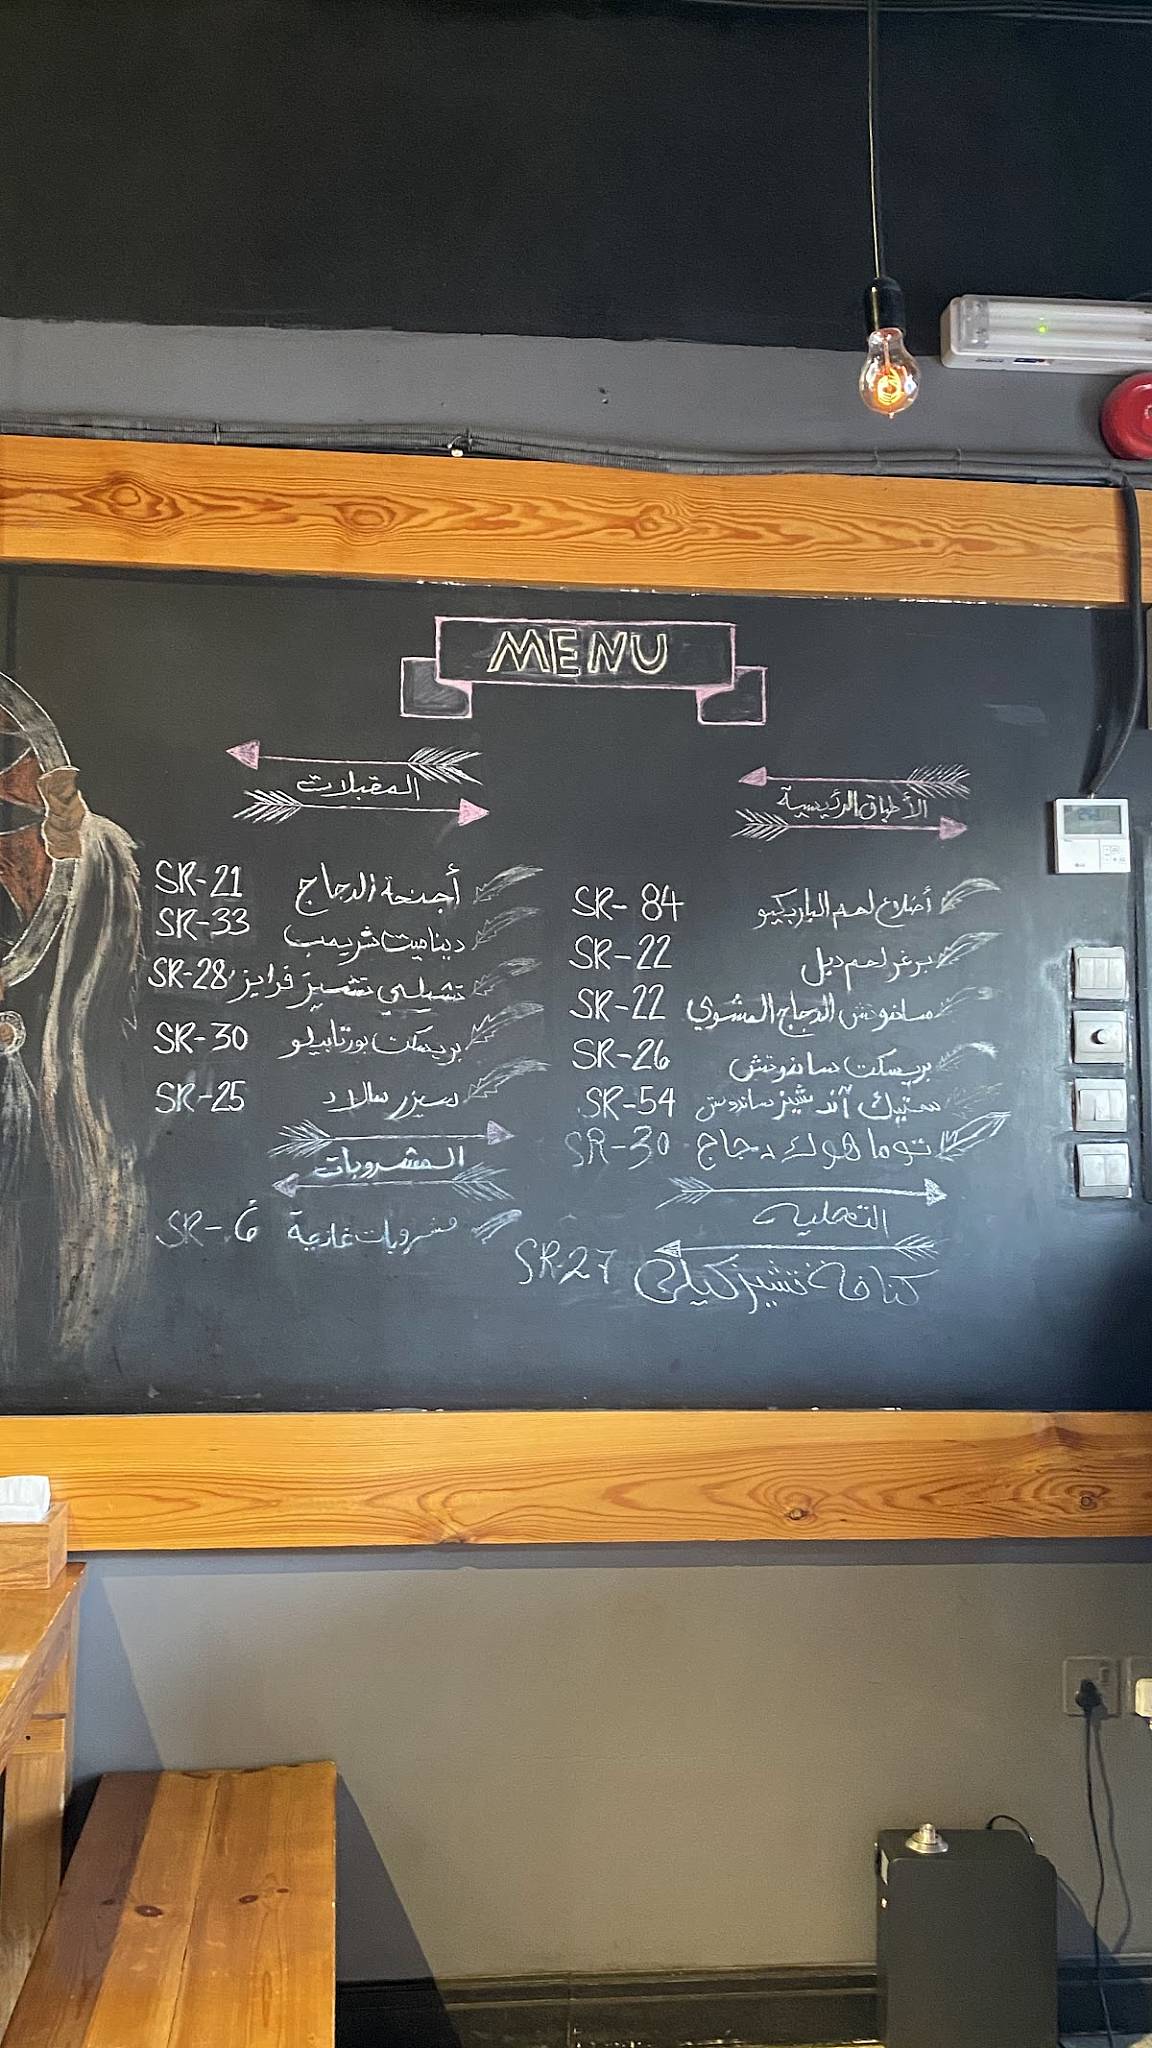 MENU
الأطباق الرئيسية
أضلاع لحم الباربكيو SR-84
برغر لحم دبل SR-22
ساندوتش الدجاج المشوي SR-22
بريسكت ساندوتش SR-26
ستيك آند تشيز ساندوتش SR-54
توما هوك دجاج SR-30
التحلية
كنافة تشيز كيك SR-27
المقبلات
أجنحة الدجاج SR-21
ديناميت شريمب SR-33
تشيلي تشيز فرايز SR-28
بريسكت بورتابيلو SR-30
سيزر سالاد SR-25
المشروبات
مشروبات غازية SR-6